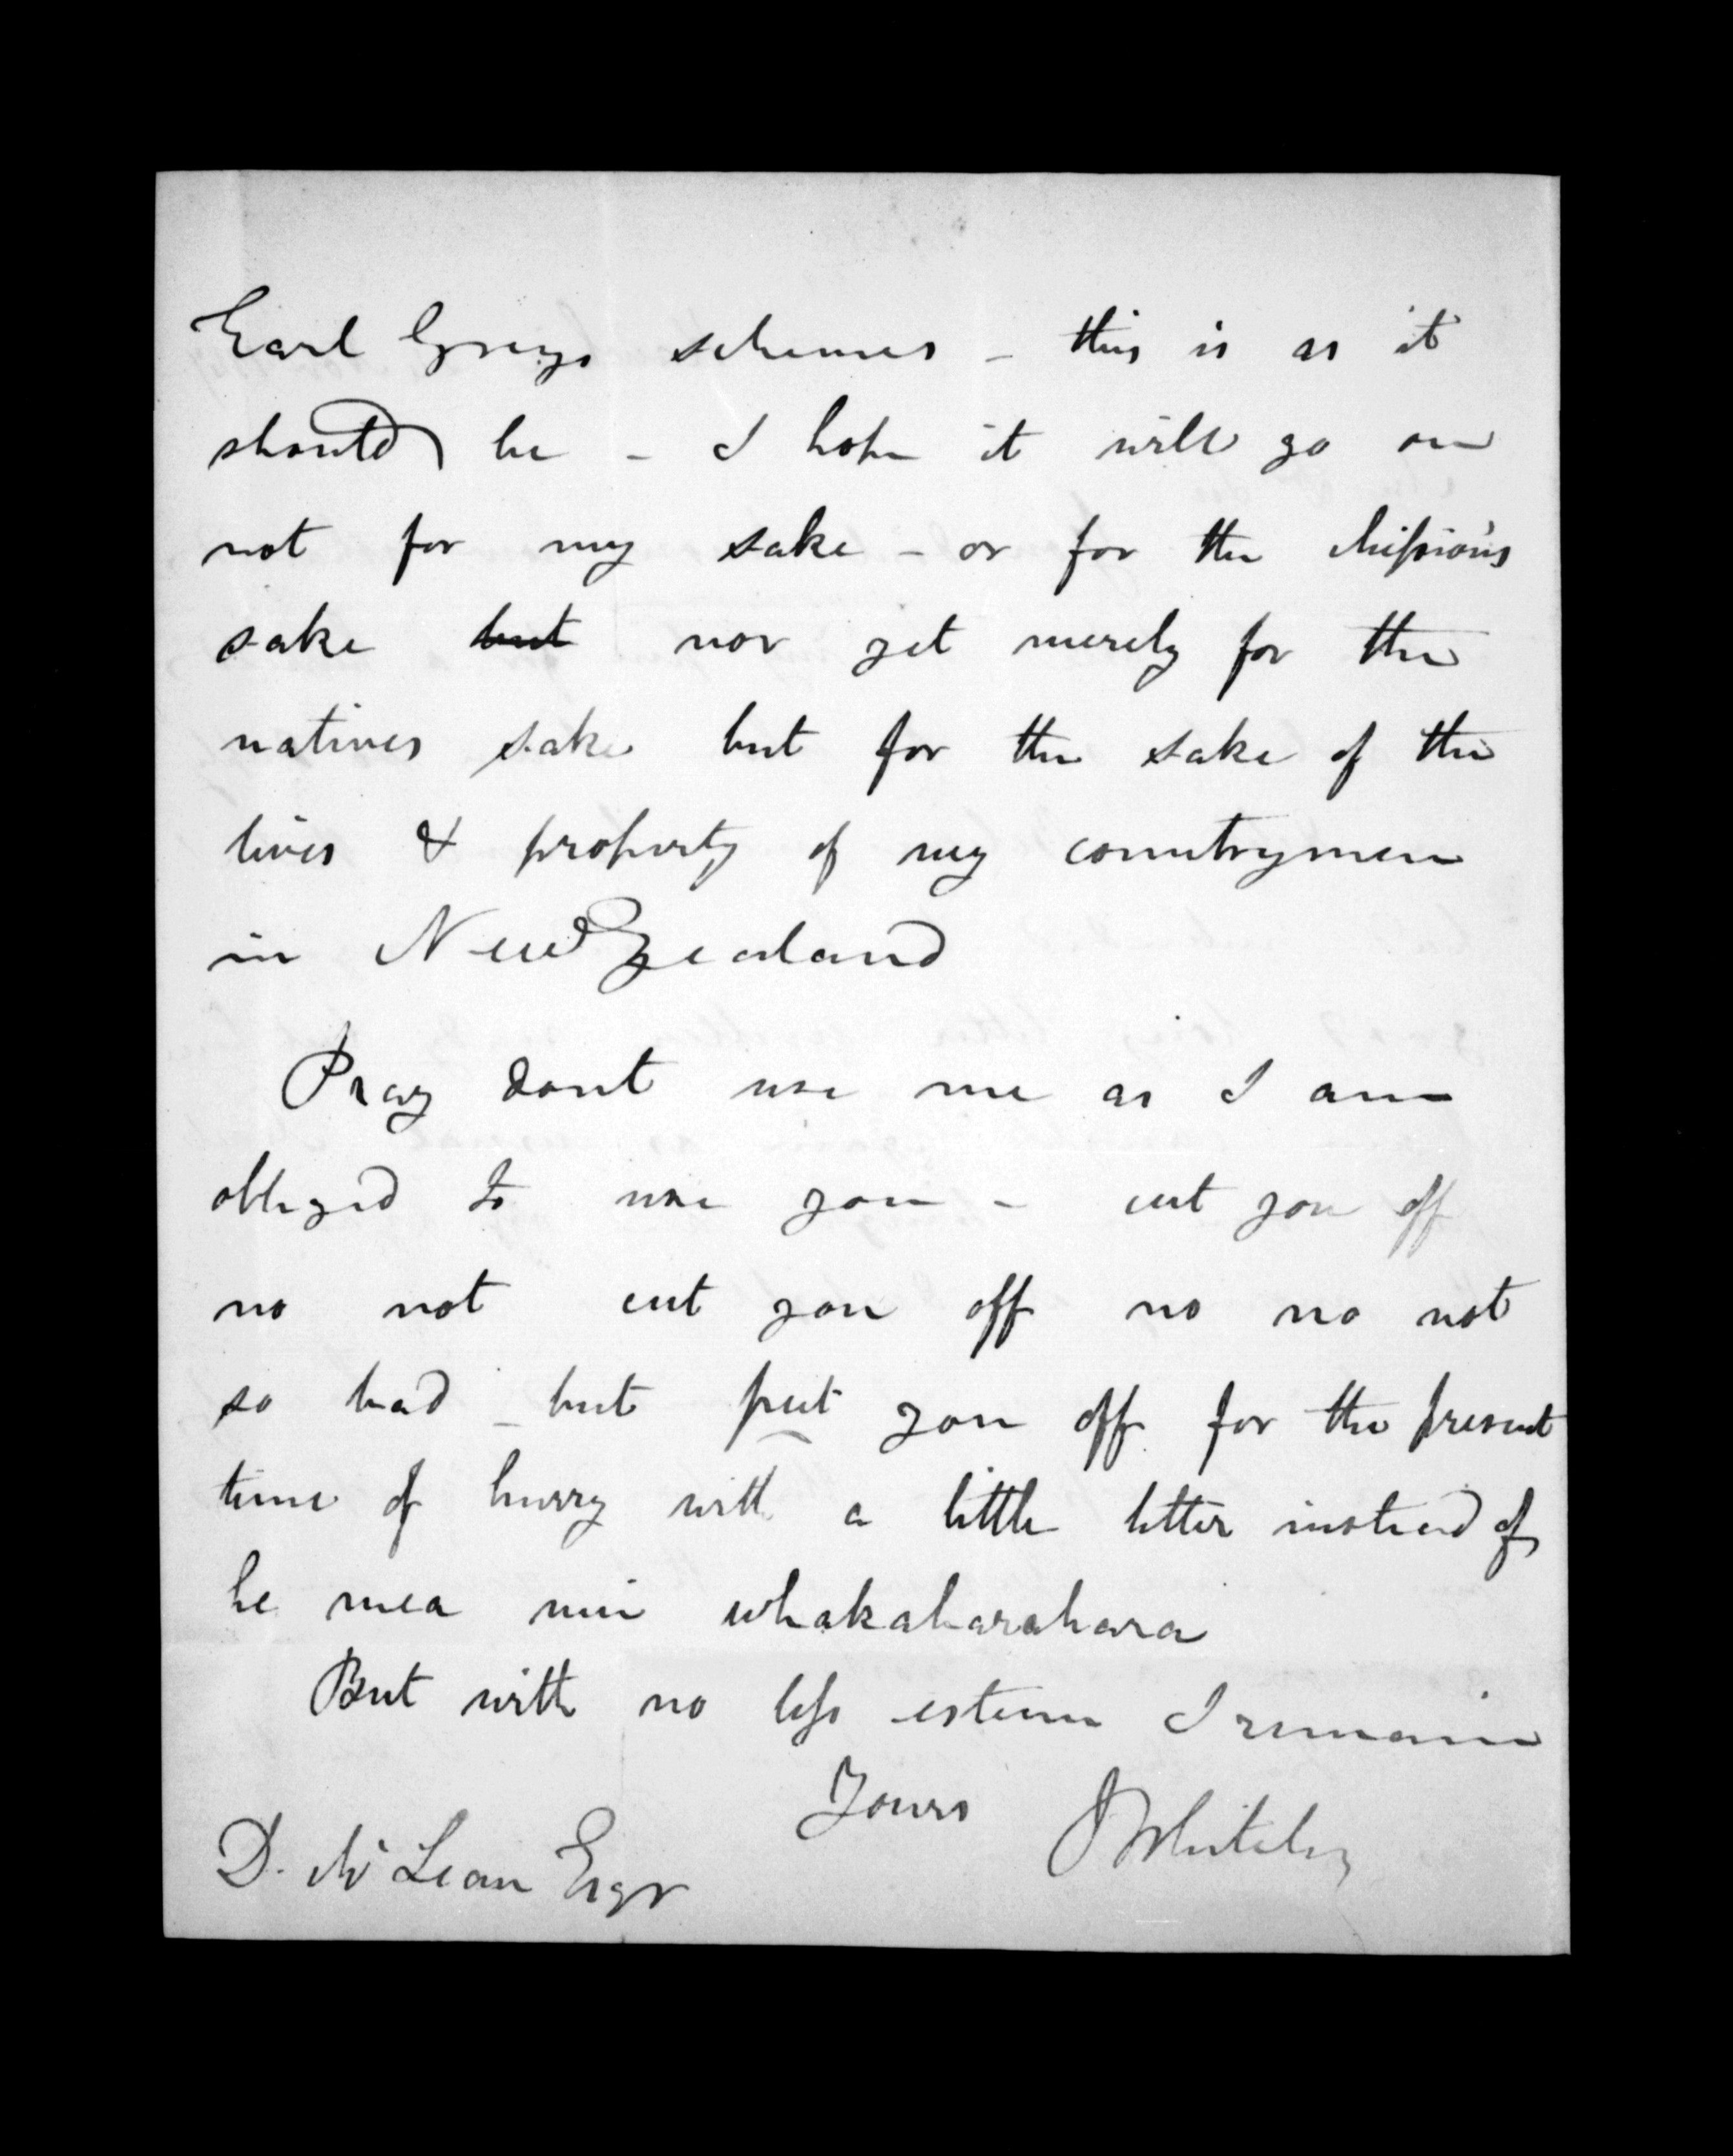 Earl Greys schemes - this is as it
should be - I hope it will go on
not for my sake - or for the Mission's
sake but nor yet merely for the
natives sake but for the sake of the
lives & property of my countrymen
in New Zealand
Pray dont use me as I am
obliged to use you - cut you off
no not cut you off no no not
so bad - but put you off for the present
time of hurry with a little letter instead of
he mea nui whakaharahara
But with no less esteem I remain
Yours J Whiteley
D. Mc Lean Esqr